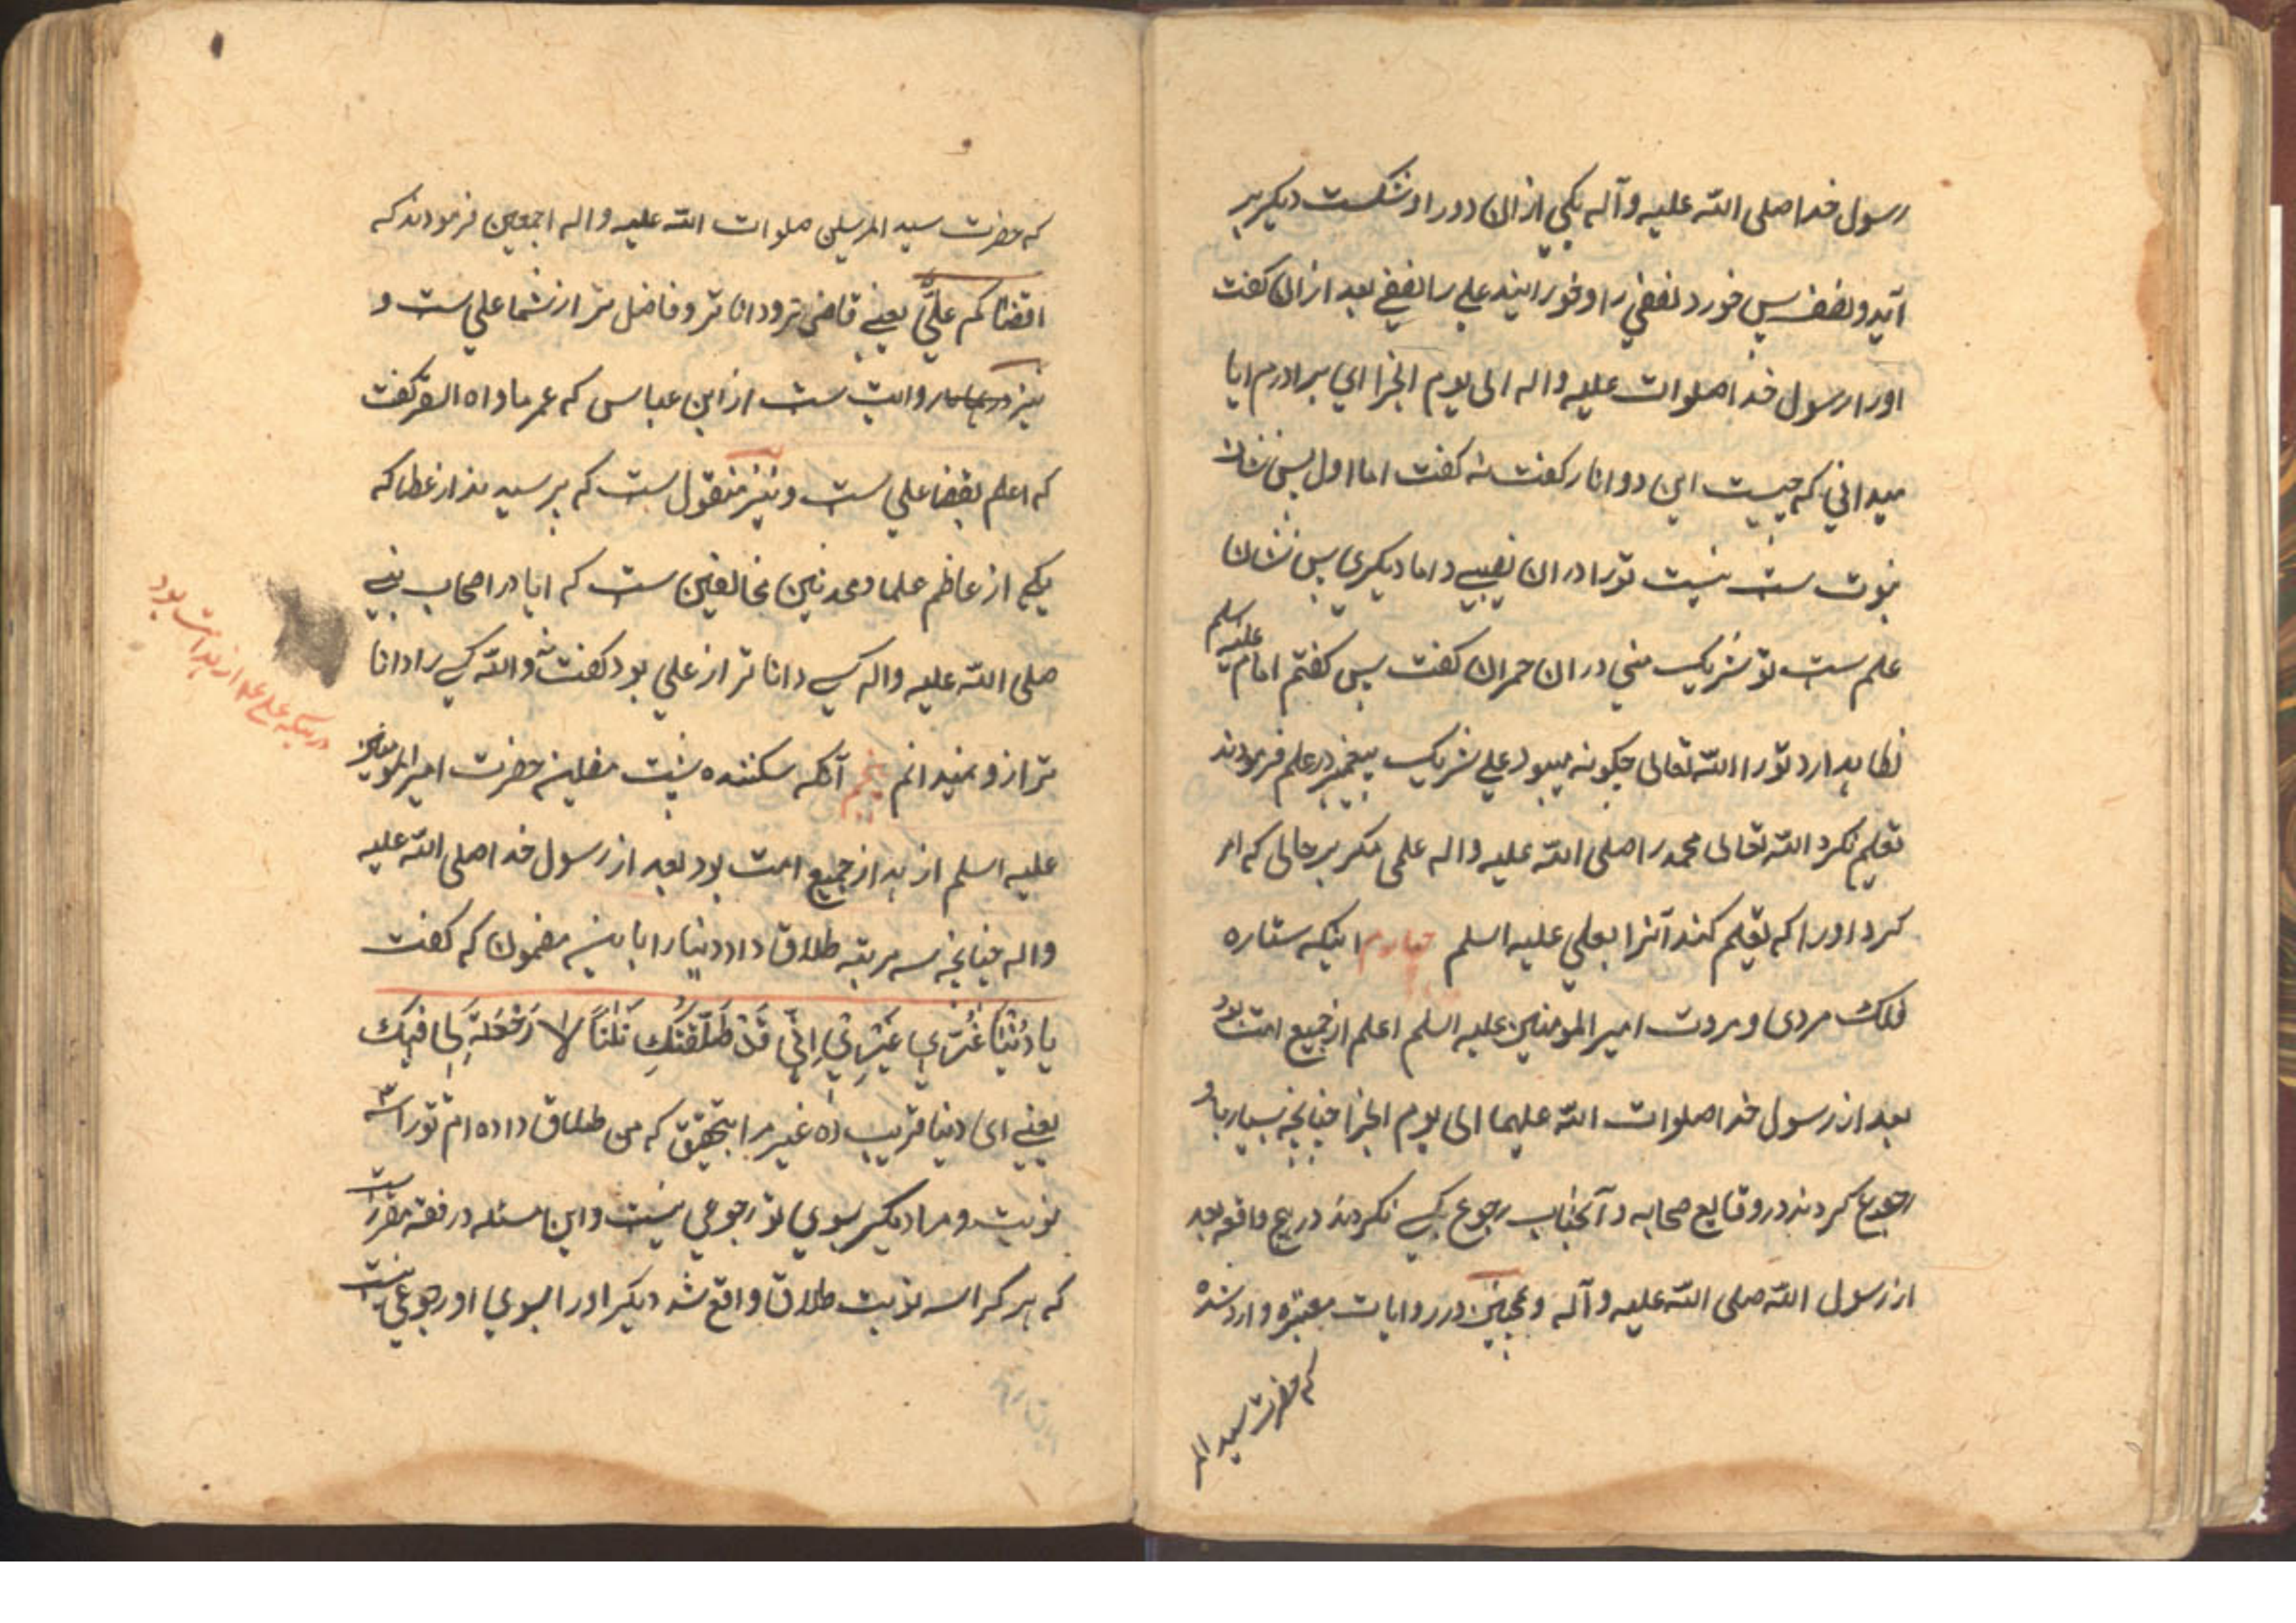 رسول خدا صلی الله علیه وآله یکی از ان دو را و شکست دیکر بر
آید و نصف پس خورد نصفی را و خورانید علی را نصفی بعد از ان کفت
او را رسول خدا صلوات علیه واله الی یوم الجزا ای برادرم ایا
میدانی که چیست این دو انار کفت نه کفت اما اول پس نشان
نبوت ست نیست تو را در ان نصیبی و اما دیکری پس نشان
علم ست تو شریک منی در ان حمران کفت پس کفتم امام علیه اسلم
نکا بدارد تو را الله تعالی چکونه میبود علی شریک پیغمبر در علم فرمودند
تعلیم نکرد الله تعالی محمد را صلی الله علیه واله علمی مکر بر حالی که امر
کرد او را که تعلیم کند آنرا بعلی علیه اسلم چهارم اینکه ستاره
فلک مردی و مروت امیر المومنین علیه اسلم اعلم از جمیع امت بود
بعد از رسول خدا صلوات الله علیهما الی یوم الجزا چنانچه بسیار باو
رجوع کردند در وقایع صحابه و آنجناب رجوع بکسی نکردند در هیچ واقعه بعد
از رسول الله صلی الله علیه وآله وهمچنین در روایات معتبره وارد شده
که حضرت سید المر
که حضرت سید المرسلین صلوات الله علیه واله اجمعین فرمودند که
اقضاکم علیّ یعنی قاضی تر و دانا تر و فاضل تر از شما علی ست و
نیز روایت ست از ابن عباس که عمر ماواه السقر کفت
که اعلم بقضا علی ست و نیز منقول ست که پرسیدند از عطا که
یکی از عاظم علما و محدثین مخالفین ست که ایا در اصحاب نبی
صلی الله علیه واله کسی دانا تر از علی بود کفت نه والله کسی را دانا
تر از و نمیدانم پنجم آنکه سکننده حضرت امیر المومنین
علیه اسلم ازهد از جمیع امت بود بعد از رسول خدا صلی الله علیه
واله چنانچه سه مرتبه طلاق داد دنیا را باینه مضمون که کفت
یا دُنْیٰا غُرّی غَیْرِی اِنّی قَدْ طَلَّقْتُکِ ثَلٰثاً لا رَجْعَةَ لِی فیک
یعنی ای دنیا فریب ده غیر مرا بتحقیق که من طلاق داده ام تو را سه
نوبت و مرا دیکر بسوی تو رجوعی نیست و این مسئله در فقه مقرر است
که هر کرا سه نوبت طلاق واقع شد دیکر او را بسوی او رجوعی نیست
در اینکه علی ع ازهد امت بود